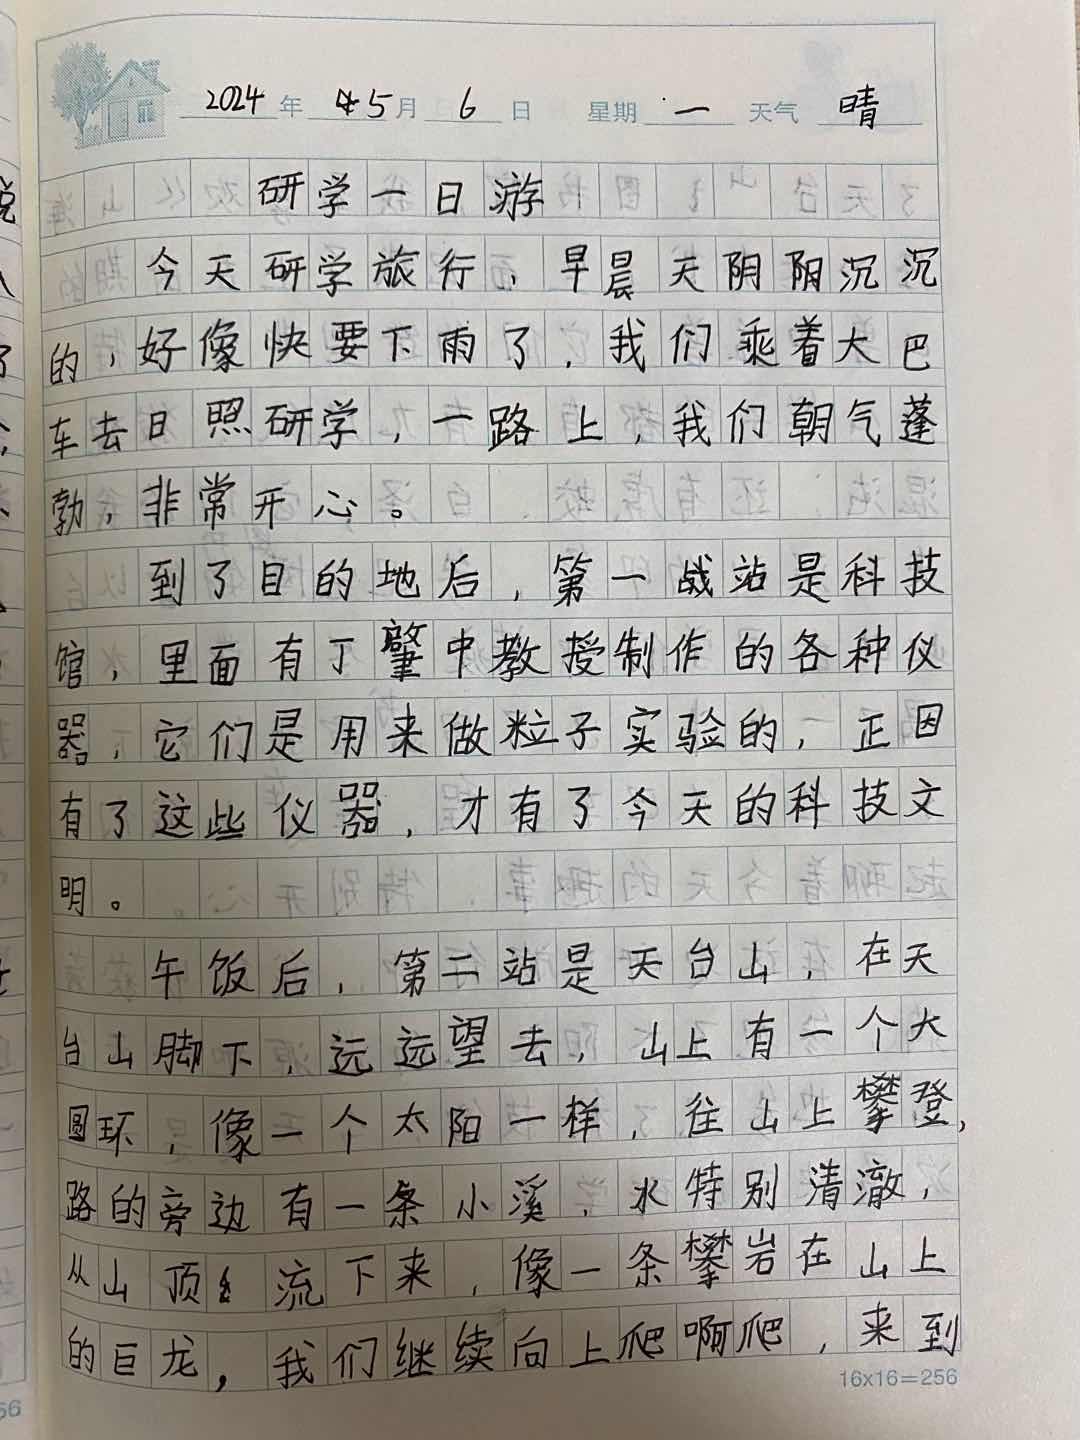 2024年 5月 6日 星期 一 天气 晴
研学一日游
今天研学旅行，早晨天阴阴沉沉
的，好像快要下雨了，我们乘着大巴
车去日照研学，一路上，我们朝气蓬
勃，非常开心。
到了目的地后，第一战站是科技
馆，里面有丁肇中教授制作的各种仪
器，它们是用来做粒子实验的，正因
有了这些仪器，才有了今天的科技文
明。
午饭后，第二站是天台山，在天
台山脚下，远远望去，山上有一个大
圆环，像一个太阳一样，往山上攀登，
路的旁边有一条小溪，水特别清澈，
从山顶流下来，像一条攀岩在山上
的巨龙，我们继续向上爬啊爬，来到
16x16=256